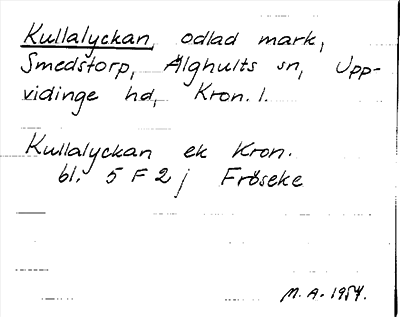 Kullalyckan, odlad mark,
Smedstorp, Älghults sn, Upp-
vidinge hd, Kron. l.
Kullalyckan ek Kron.
bl. 5 F 2 j Fröseke
M. A. 1954.